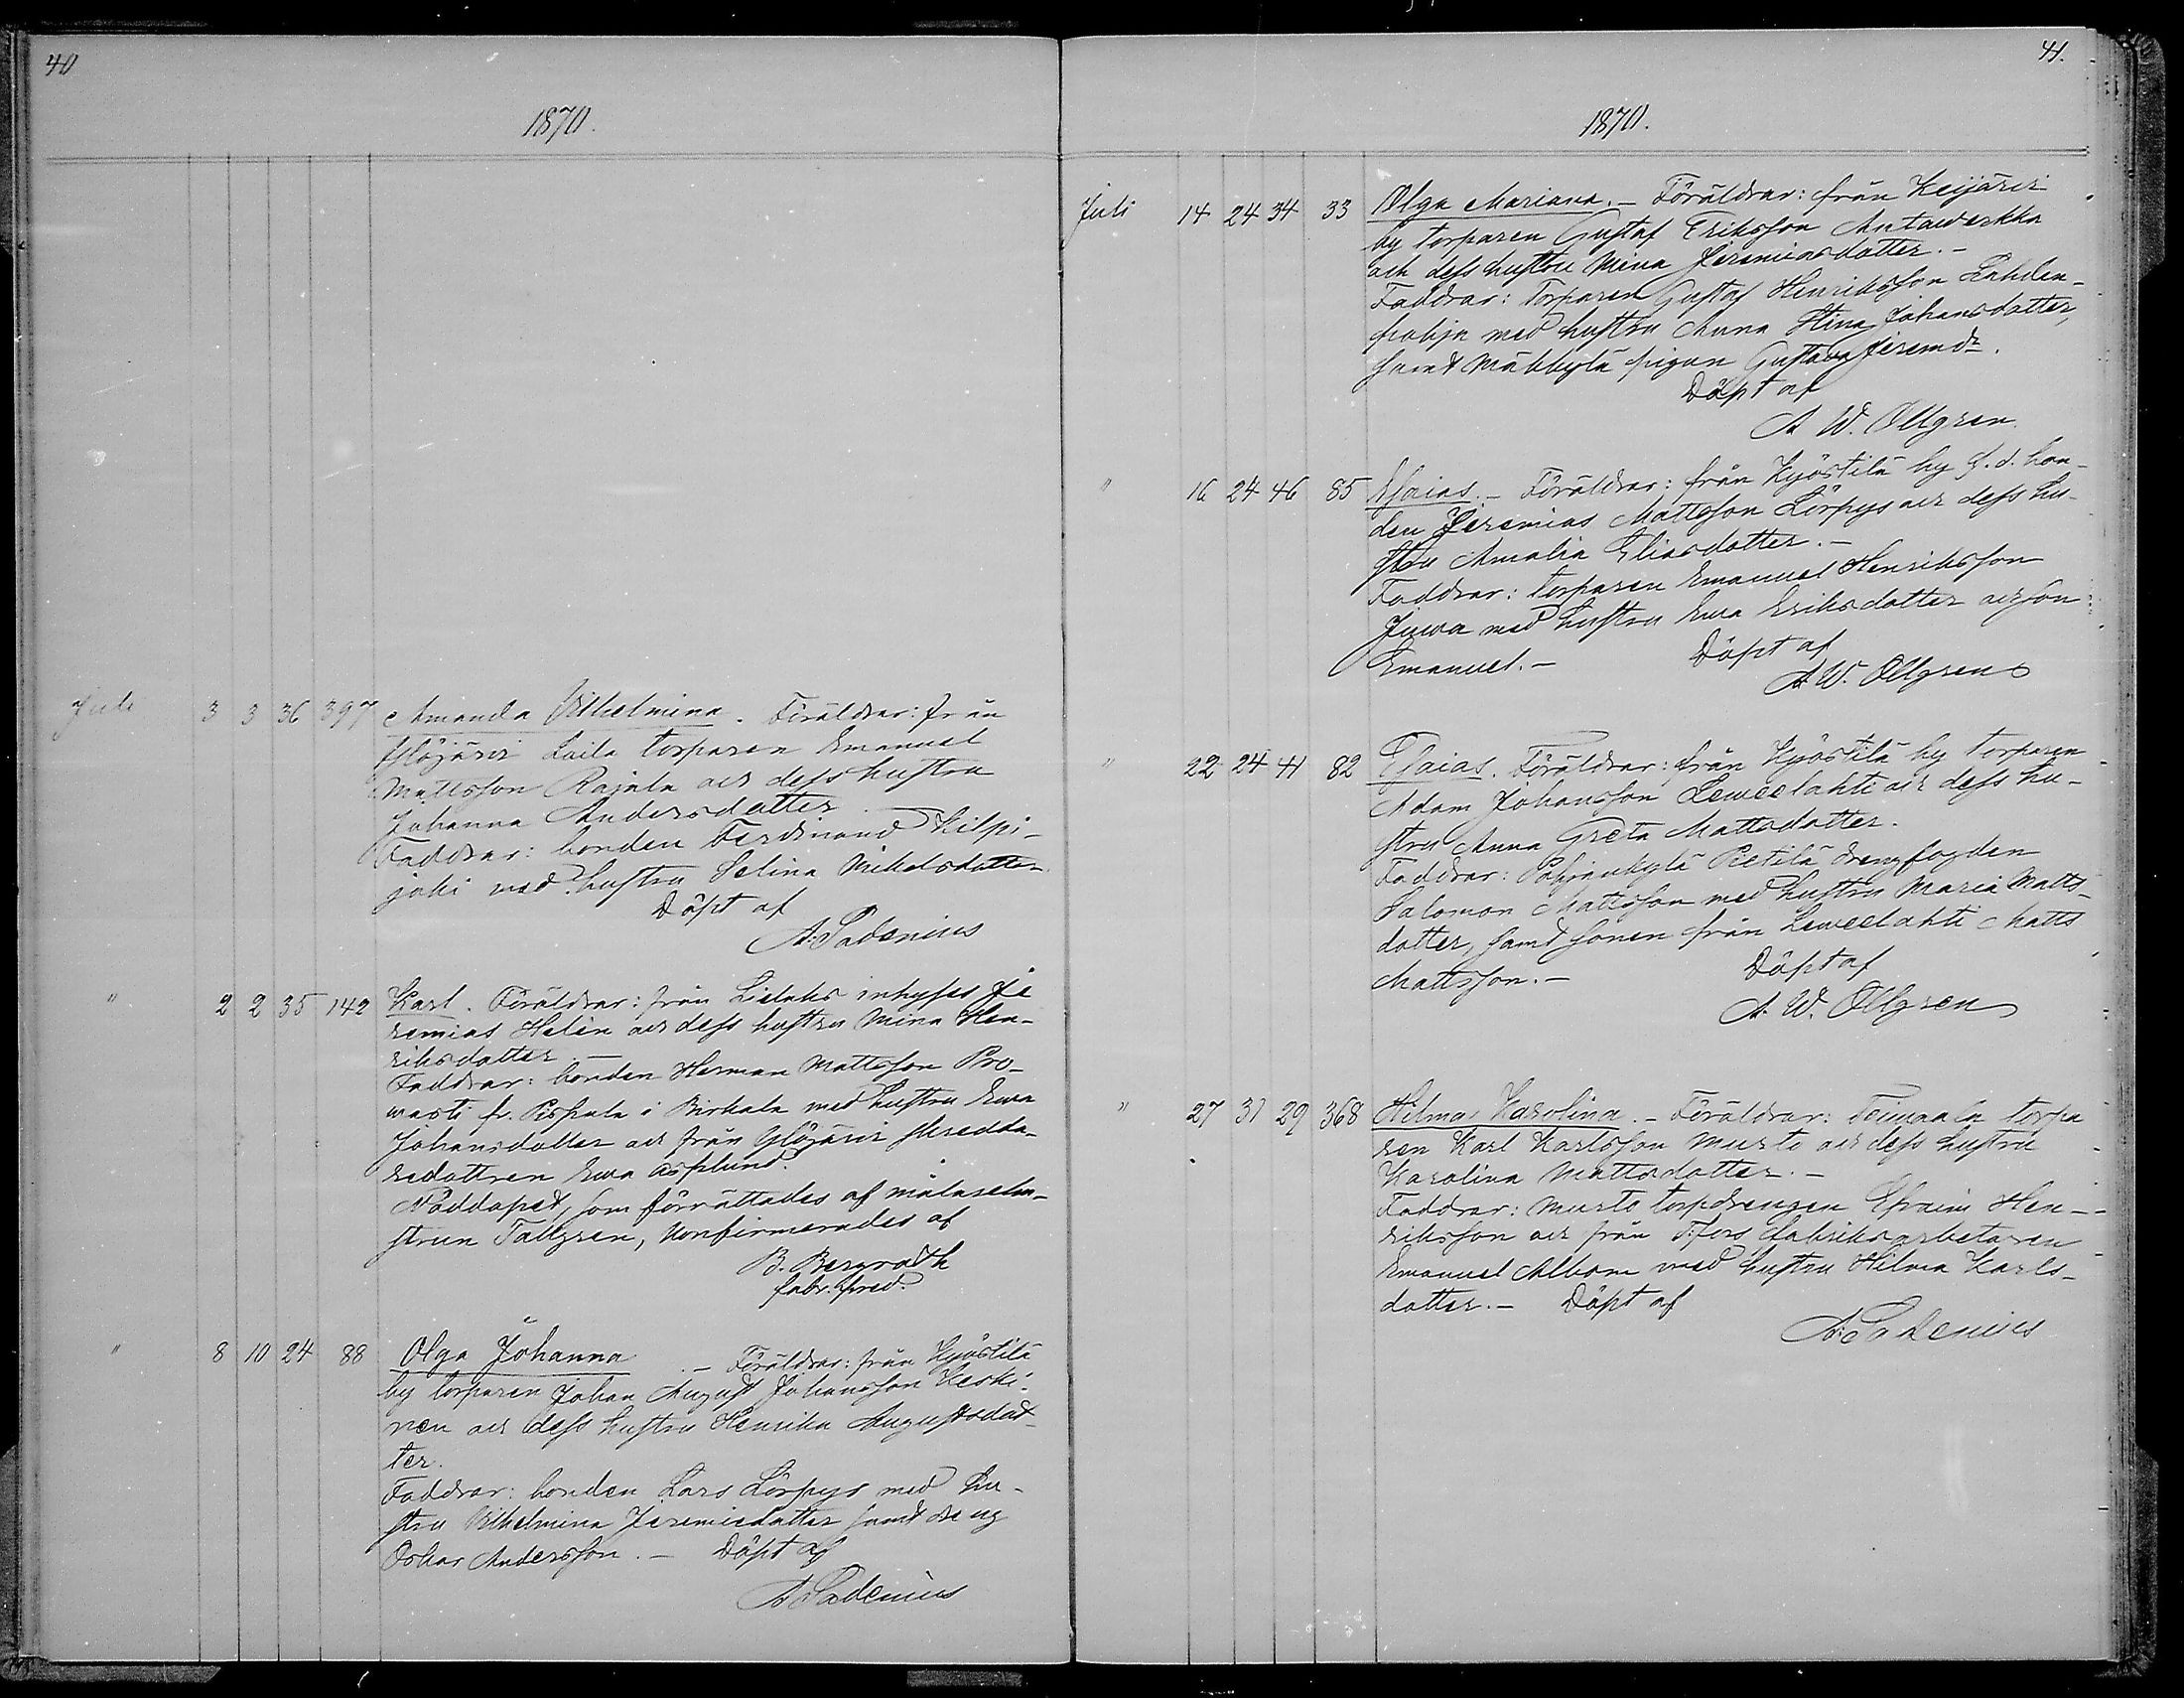 40
1870.
Juli 3 3 36 397 Amanda Vilhelmina. Föräldrar: från
Ylöjärvi Laila torparen Emanuel
Mattsson Rajala och dess hustru
Johanna Andersdotter
Faddrar: bonden Ferdinand Kilpi-
joki med hustru Selina Mikelsdotter
Döpt af
A. Sadenius
" 2 2 35 142 Karl. Föräldrar: från Lielaks inhyses Je
remias Helén och dess hustru Mina Hen-
riksdotter. —
Faddrar: bonden Herman Mattsson Pro-
vasti fr. Pispala i Birkala med hustru Eva
Johansdotter och från Ylöjärvi skredda-
redottren Eva Asplund.
Nöddopet, som förrättades af målarehu-
strun Tallgren, konfirmerades af
B. Bergroth
fabr. pred.
" 8 10 24 88 Olga Johanna. — Föräldrar: från Kyöstilä
by torparen Johan August Johansson Keski-
nen och dess hustru Henrika Augustsdot-
ter.
Faddrar: bonden Lars Lörpys med hu-
stru Vilhelmina Jeremiedotter samt dreng
Oskar Andersson. — Döpt af
A. Sadenius
41.
1870.
Juli 14 24 34 33 Olga Mariana. — Föräldrar: från Keijärvi
by torparen Gustaf Eriksson Antaverkka
och dess hustru Mina Jeremiasdotter. —
Faddrar: Torparen Gustaf Henriksson Lahden-
pohja med hustru Anna Stina Johansdotter,
samt Mäkkylä pigan Gustava Jeremdr.
Döpt af
A W. Ollgren
" 16 24 46 85 Esaias. — Föräldrar: från Kyöstilä by f.d. bon-
den Jeremias Mattsson Lörpys och dess hu-
stru Amalia Eliasdotter. —
Faddrar: torparen Emanuel Henriksson
Juva med hustru Eva Eriksdotter och son
Emanuel. — Döpt af
A. W. Ollgren
" 22 24 41 82 Esaias. Föräldrar: från Kyöstilä by torparen
Adam Johansson Leveelahti och dess hu-
stru Anna Greta Mattsdotter.
Faddrar: Pohjankylä Pietilä drengfogden
Salomon Mattsson med hustru Maria Matts-
dotter, samt sonen från Leveelahti Matts
Mattsson. — Döpt af
A. W. Ollgren
" 27 31 29 368 Hilma Karolina. — Föräldrar: Teivaala torpa
ren Karl Karlsson Murto och dess hustru
Karolina Mattsdotter. —
Faddrar: Murto torpdrengen Efraim Hen-
riksson och från T:fors fabriksarbetaren
Emanuel Albom med hustru Hilma Karls-
dotter. — Döpt af
A. Sadenius